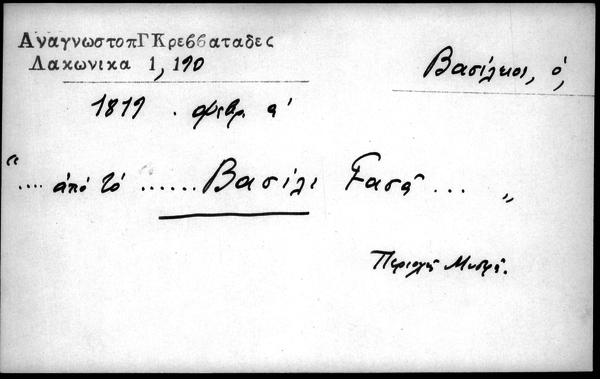 ΑναγνωστοπΓΚρεββαταδες
Λακωνικα 1, 190
Βασίλειοι, ὁ,
1819 . φεβρ. α'
".... ἀπό τό ...... Βασίλι Γασᾶ ... "
Περιοχῆς Μυστρᾶ.